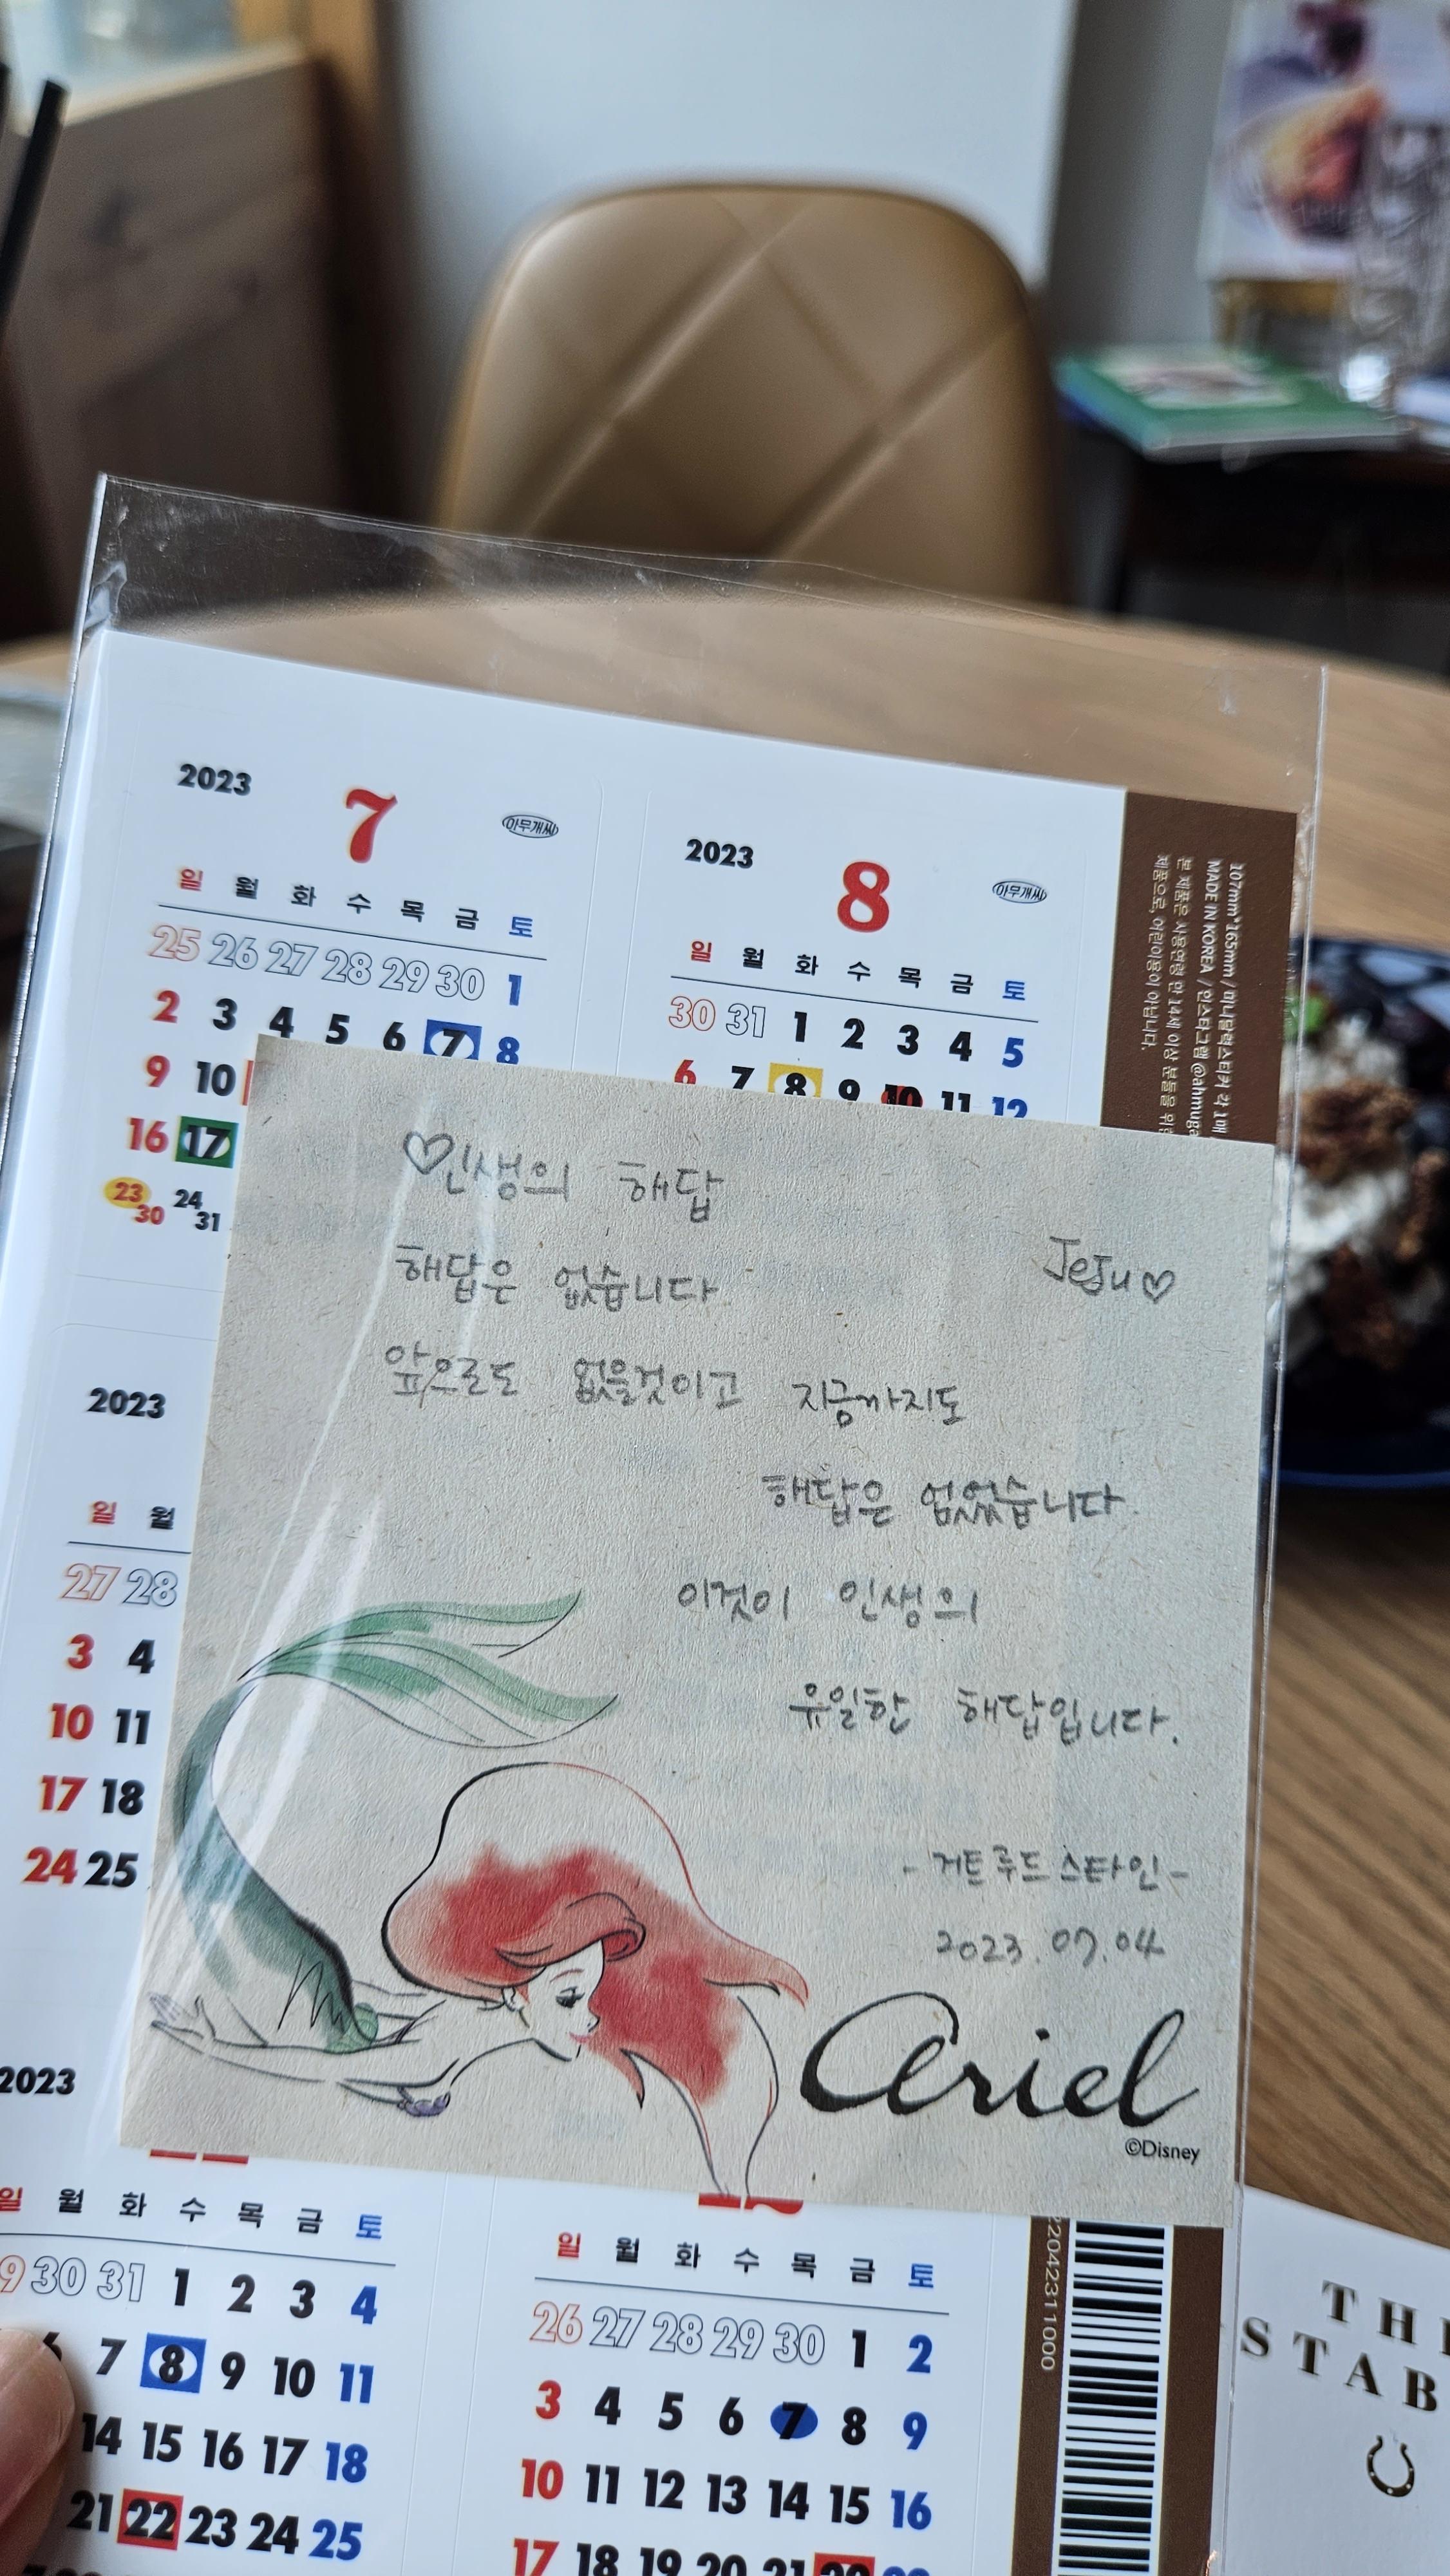 2023
7
아무개씨
일 월 화 수 목 금 토
25 26 27 28 29 30 1
2 3 4 5 6 7 8
9 10
16 17
23 30 24 31
2023
8
아무개씨
일 월 화 수 목 금 토
30 31 1 2 3 4 5
6 7 8 9 10 11 12
107mm*165mm / 미니달력스티커 각 1매
MADE IN KOREA / 인스타그램 @ahmuga
본 제품은 사용연령 만 14세 이상 분들을 위한
제품으로, 어린이용이 아닙니다.
♡인생의 해답
JeJu♡
해답은 없습니다
앞으로도 없을것이고 지금까지도
해답은 없었습니다.
이것이 인생의
유일한 해답입니다.
- 거트루드 스타인 -
2023.07.04
Ariel
©Disney
2023
일 월
27 28
3 4
10 11
17 18
24 25
2023
일 월 화 수 목 금 토
30 31 1 2 3 4
7 8 9 10 11
14 15 16 17 18
21 22 23 24 25
일 월 화 수 목 금 토
26 27 28 29 30 1 2
3 4 5 6 7 8 9
10 11 12 13 14 15 16
17 18 19 20 21
22042311000
THE
STAB